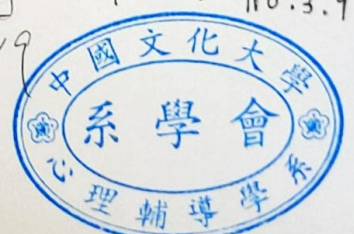 110.3.9
中國文化大學
系學會
心理輔導學系